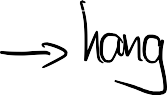 → hang